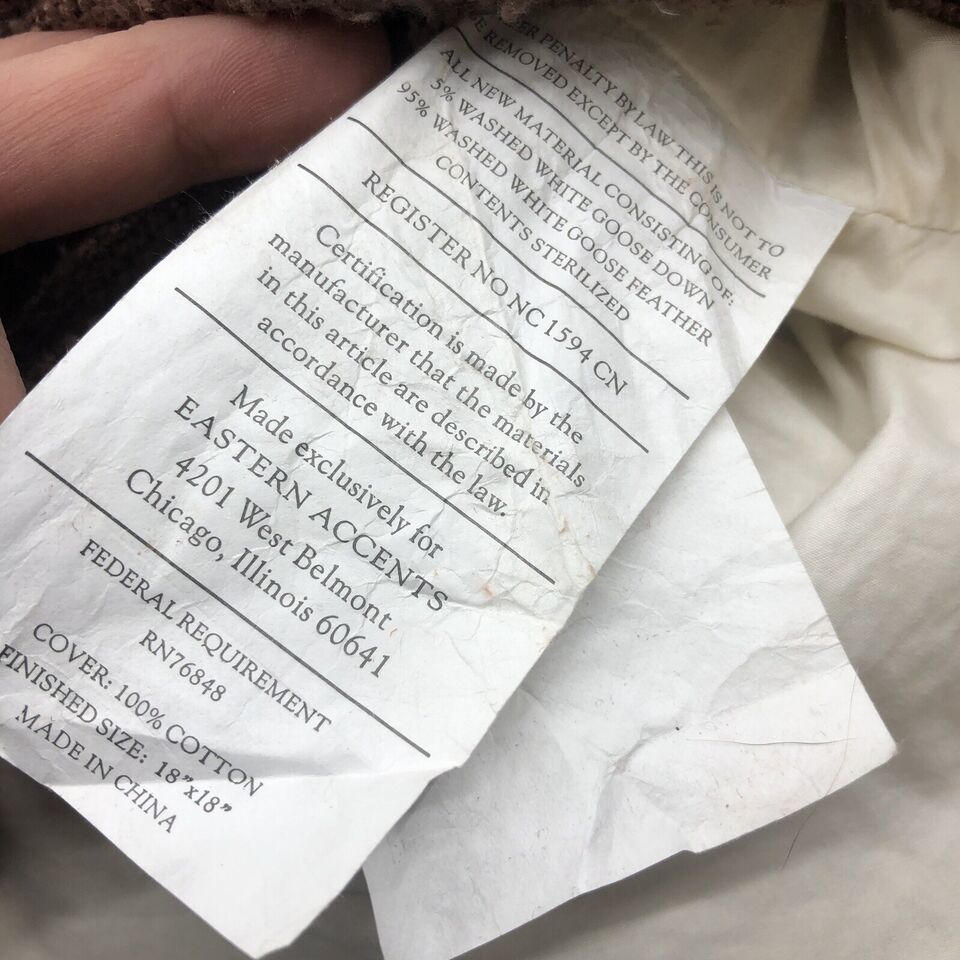 PENALTY BY LAW THIS IS NOT TO
BE REMOVED EXCEPT BY THE CONSUMER
ALL NEW MATERIAL CONSISTING OF:
5% WASHED WHITE GOOSE DOWN
95% WASHED WHITE GOOSE FEATHER
CONTENTS STERILIZED
REGISTER NO NC 1594 CN
Certification is made by the
manufacturer that the materials
in this article are described in
accordance with the law.
Made exclusively for
EASTERN ACCENTS
4201 West Belmont
Chicago, Illinois 60641
FEDERAL REQUIREMENT
RN76848
COVER: 100% COTTON
FINISHED SIZE: 18"x18"
MADE IN CHINA